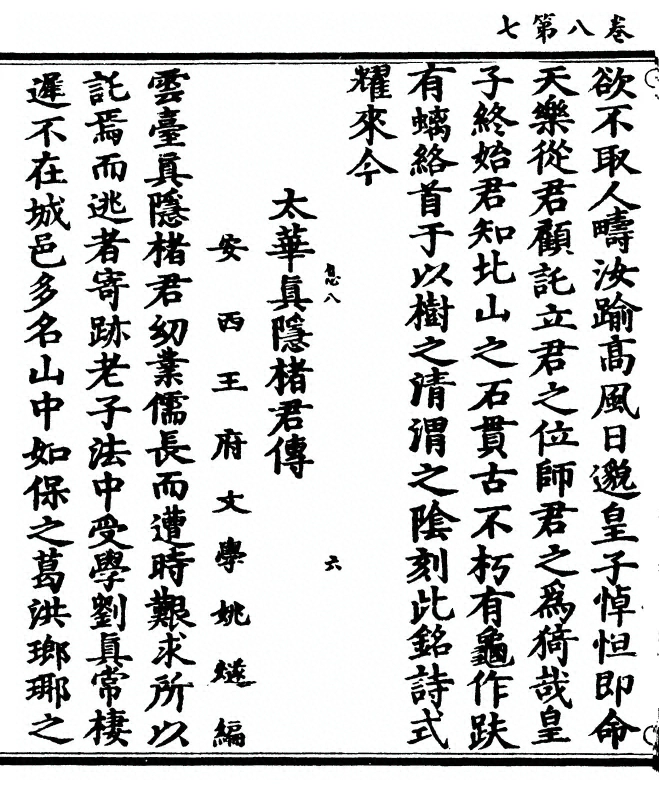 卷八第七
欲不取人疇汝踰高風日邈皇子悼怛即命
天樂從君顧託立君之位師君之為猗哉皇
子終始君知北山之石貫古不朽有龜作趺
有螭絡首于以樹之清渭之陰刻此銘詩式
耀來今
息八
六
太華真隱楮君傳
安西王府文學姚燧編
雲臺真隱楮君幼業儒長而遭時艱求所以
託焉而逃者寄跡老子法中受學劉真常棲
遲不在城邑多名山中如保之葛洪瑯瑘之